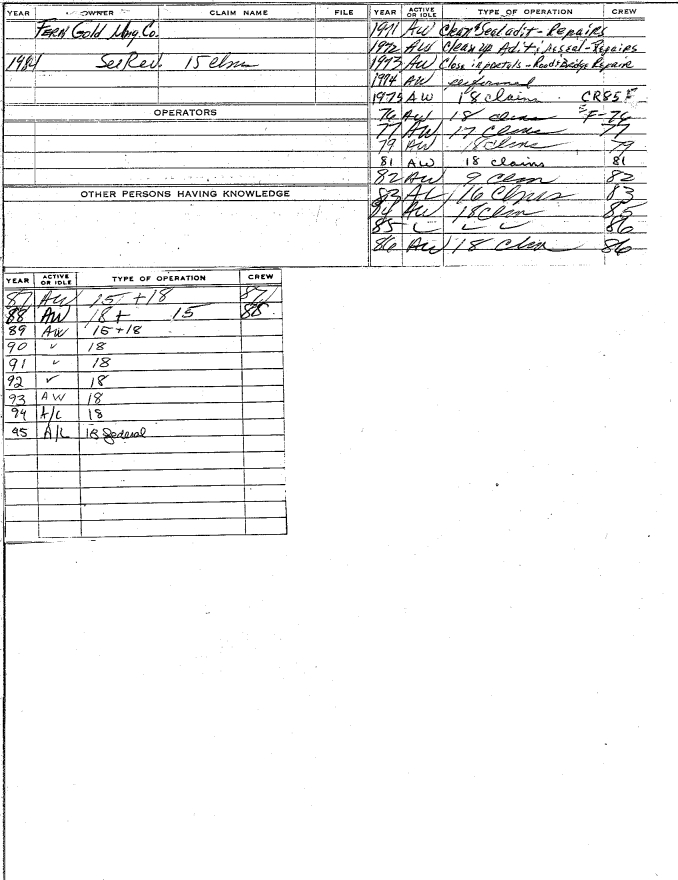 YEAR OWNER CLAIM NAME FILE
FERN Gold Mng. Co.
1984 See Rev. 15 clms
OPERATORS
OTHER PERSONS HAVING KNOWLEDGE
YEAR ACTIVE OR IDLE TYPE OF OPERATION CREW
1971 AW Clean & Seal adit - Repairs
1972 AW Clean up Adit; Reseal - Repairs
1973 AW Close in portals - Road & Bridge Repair
1974 AW performed
1975 AW 18 claims CR85 F
76 AW 18 claims F-76
77 AW 17 Clms 77
79 AW 18 clms 79
81 AW 18 claims 81
82 AW 9 Clm 82
83 AL 16 Clms 83
84 AW 18 Clm 85
85 86
86 AW 18 Clm 86
YEAR ACTIVE OR IDLE TYPE OF OPERATION CREW
87 AW 15 + 18 87
88 AW 18 + 15 88
89 AW 15 + 18
90 " 18
91 " 18
92 ✓ 18
93 AW 18
94 A/L 18
95 A/L 18 federal